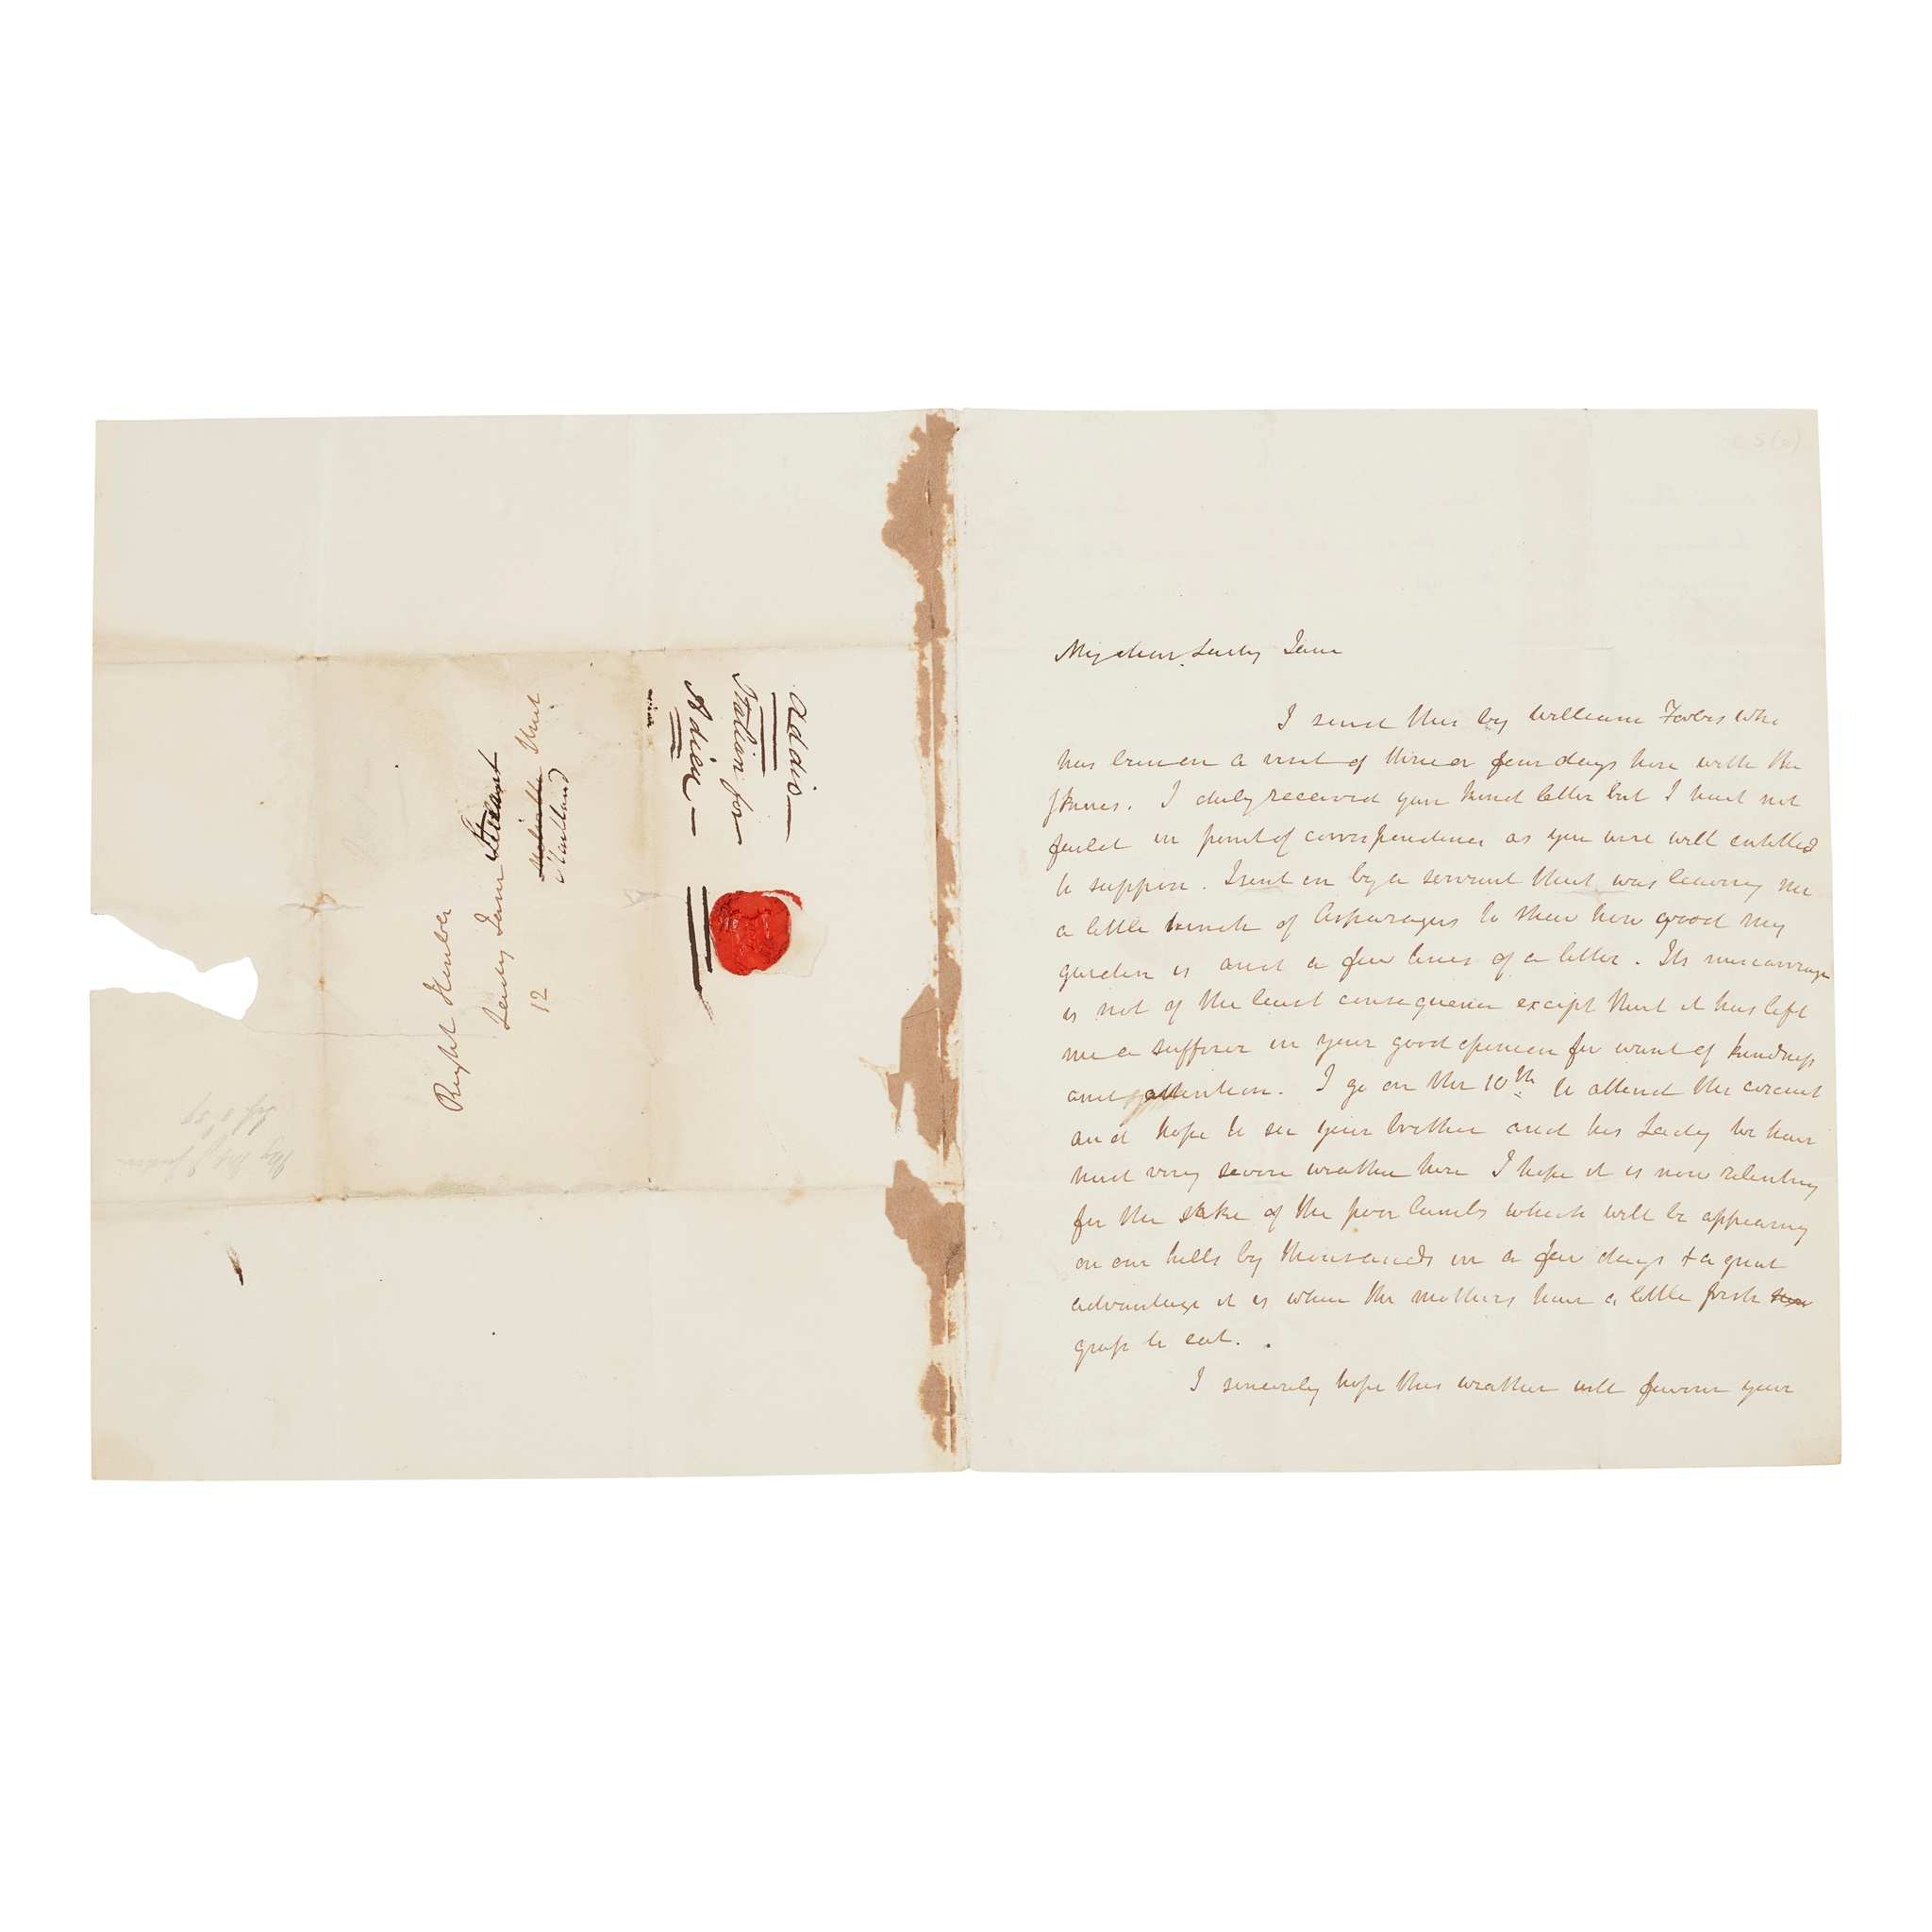 addio
Italian for
Adieu
Right Honble
Lady Jane Stuart
12 Maitland
Street
My dear Lady Jane
I send this by William Forbes who
has been on a visit of three or four days here with the
Skenes. I duly received your kind letter but I had not
faild in point of correspondence as you were well entitled
to suppose. I sent in by a servant that was leaving me
a little bunch of Asparagus to shew how good my
garden is and a few lines of a letter. Its miscarriage
is not of the least consequence except that it has left
me a sufferer in your good opinion for want of kindness
and attention. I go on the 10th to attend the circuit
and hope to see your brother and his Lady we have
had very severe weather here I hope it is now relenting
for the sake of the poor lambs which will be appearing
on our hills by thousands in a few days & a great
advantage it is when the mothers have a little fresh
grass to eat.
I sincerely hope this weather will favour your